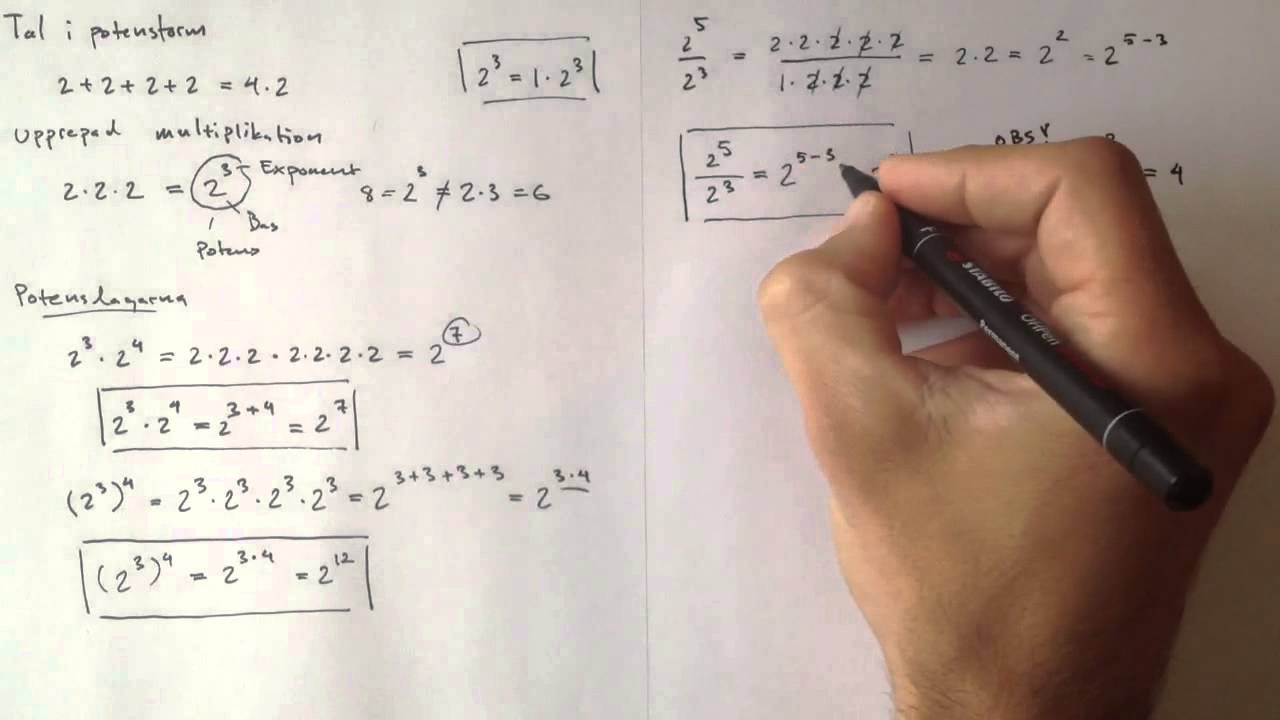 Tal i potensform
2 + 2 + 2 + 2 = 4 · 2
2³ = 1 · 2³
Upprepad multiplikation
2 · 2 · 2 = 2³
Exponent
Bas
Potens
8 = 2³ ≠ 2 · 3 = 6
Potenslagarna
2³ · 2⁴ = 2 · 2 · 2 · 2 · 2 · 2 · 2 = 2⁷
2³ · 2⁴ = 2³⁺⁴ = 2⁷
(2³)⁴ = 2³ · 2³ · 2³ · 2³ = 2³⁺³⁺³⁺³ = 2^(3·4)
(2³)⁴ = 2^(3·4) = 2¹²
2⁵/2³ = (2 · 2 · 2 · 2 · 2)/(1 · 2 · 2 · 2) = 2 · 2 = 2² = 2⁵⁻³
2⁵/2³ = 2⁵⁻³
OBS!
= 4
STABILO
OHPen
Permanent